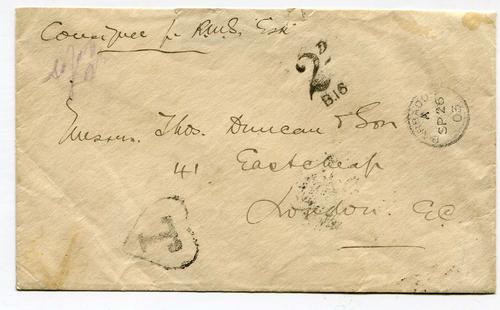 Consignee pr R.M.S. Esk
2D
B.16
BARBADOS
A
SP 26
03
Messrs. Thos. Duncan & Son
41 Eastcheap
London. E.C.
T